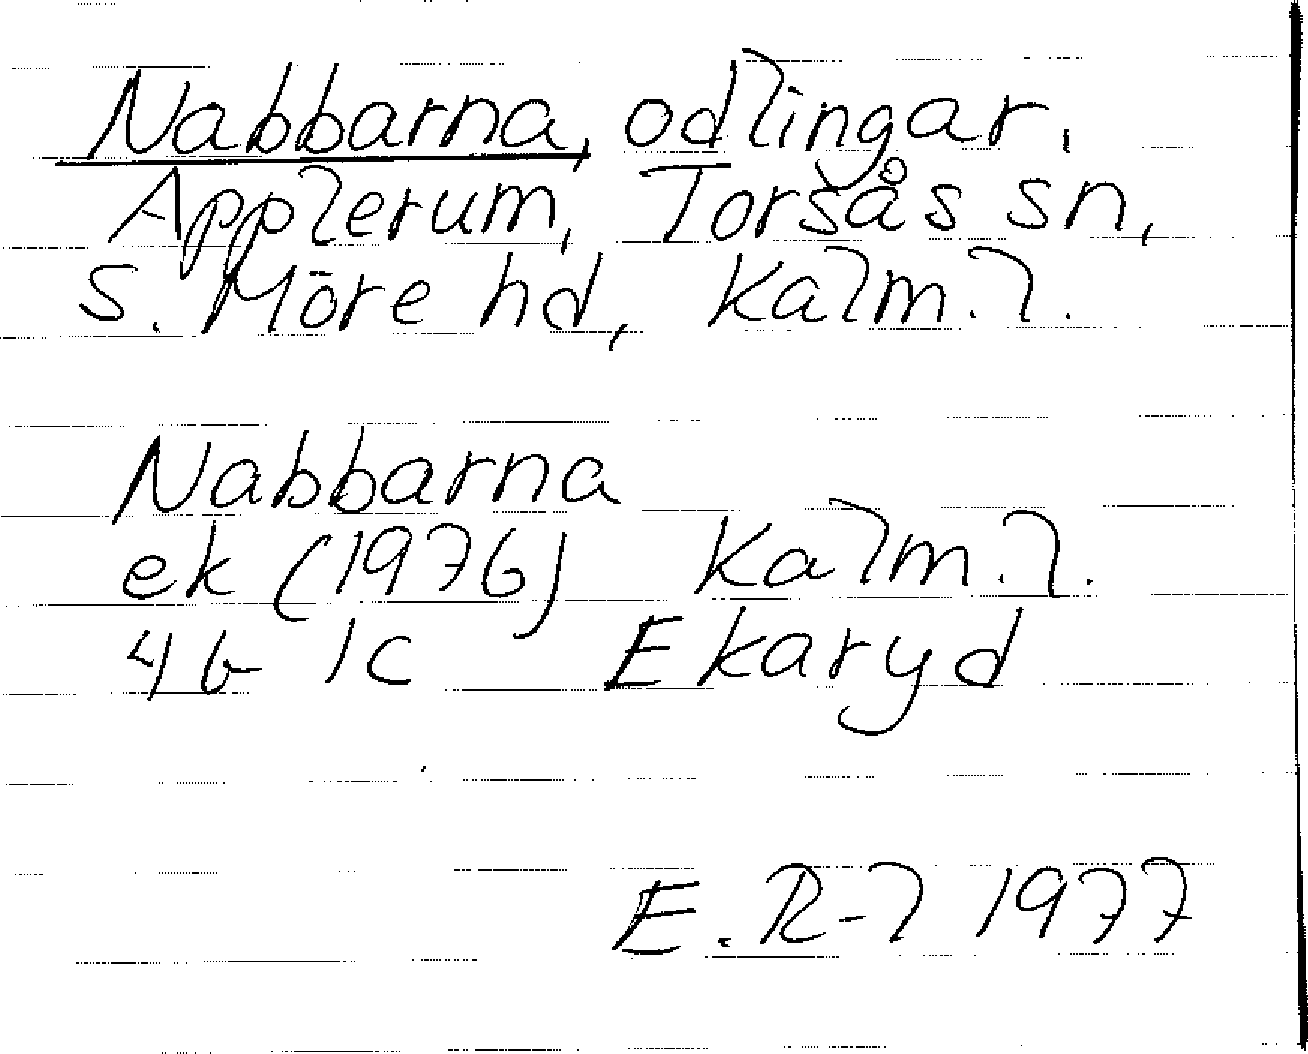 Nabbarna, odlingar,
Applerum, Torsås sn,
S. Möre hd, Kalm. l.
Nabbarna
ek (1976) Kalm. l.
4G 1c Ekaryd
E. R-l 1977